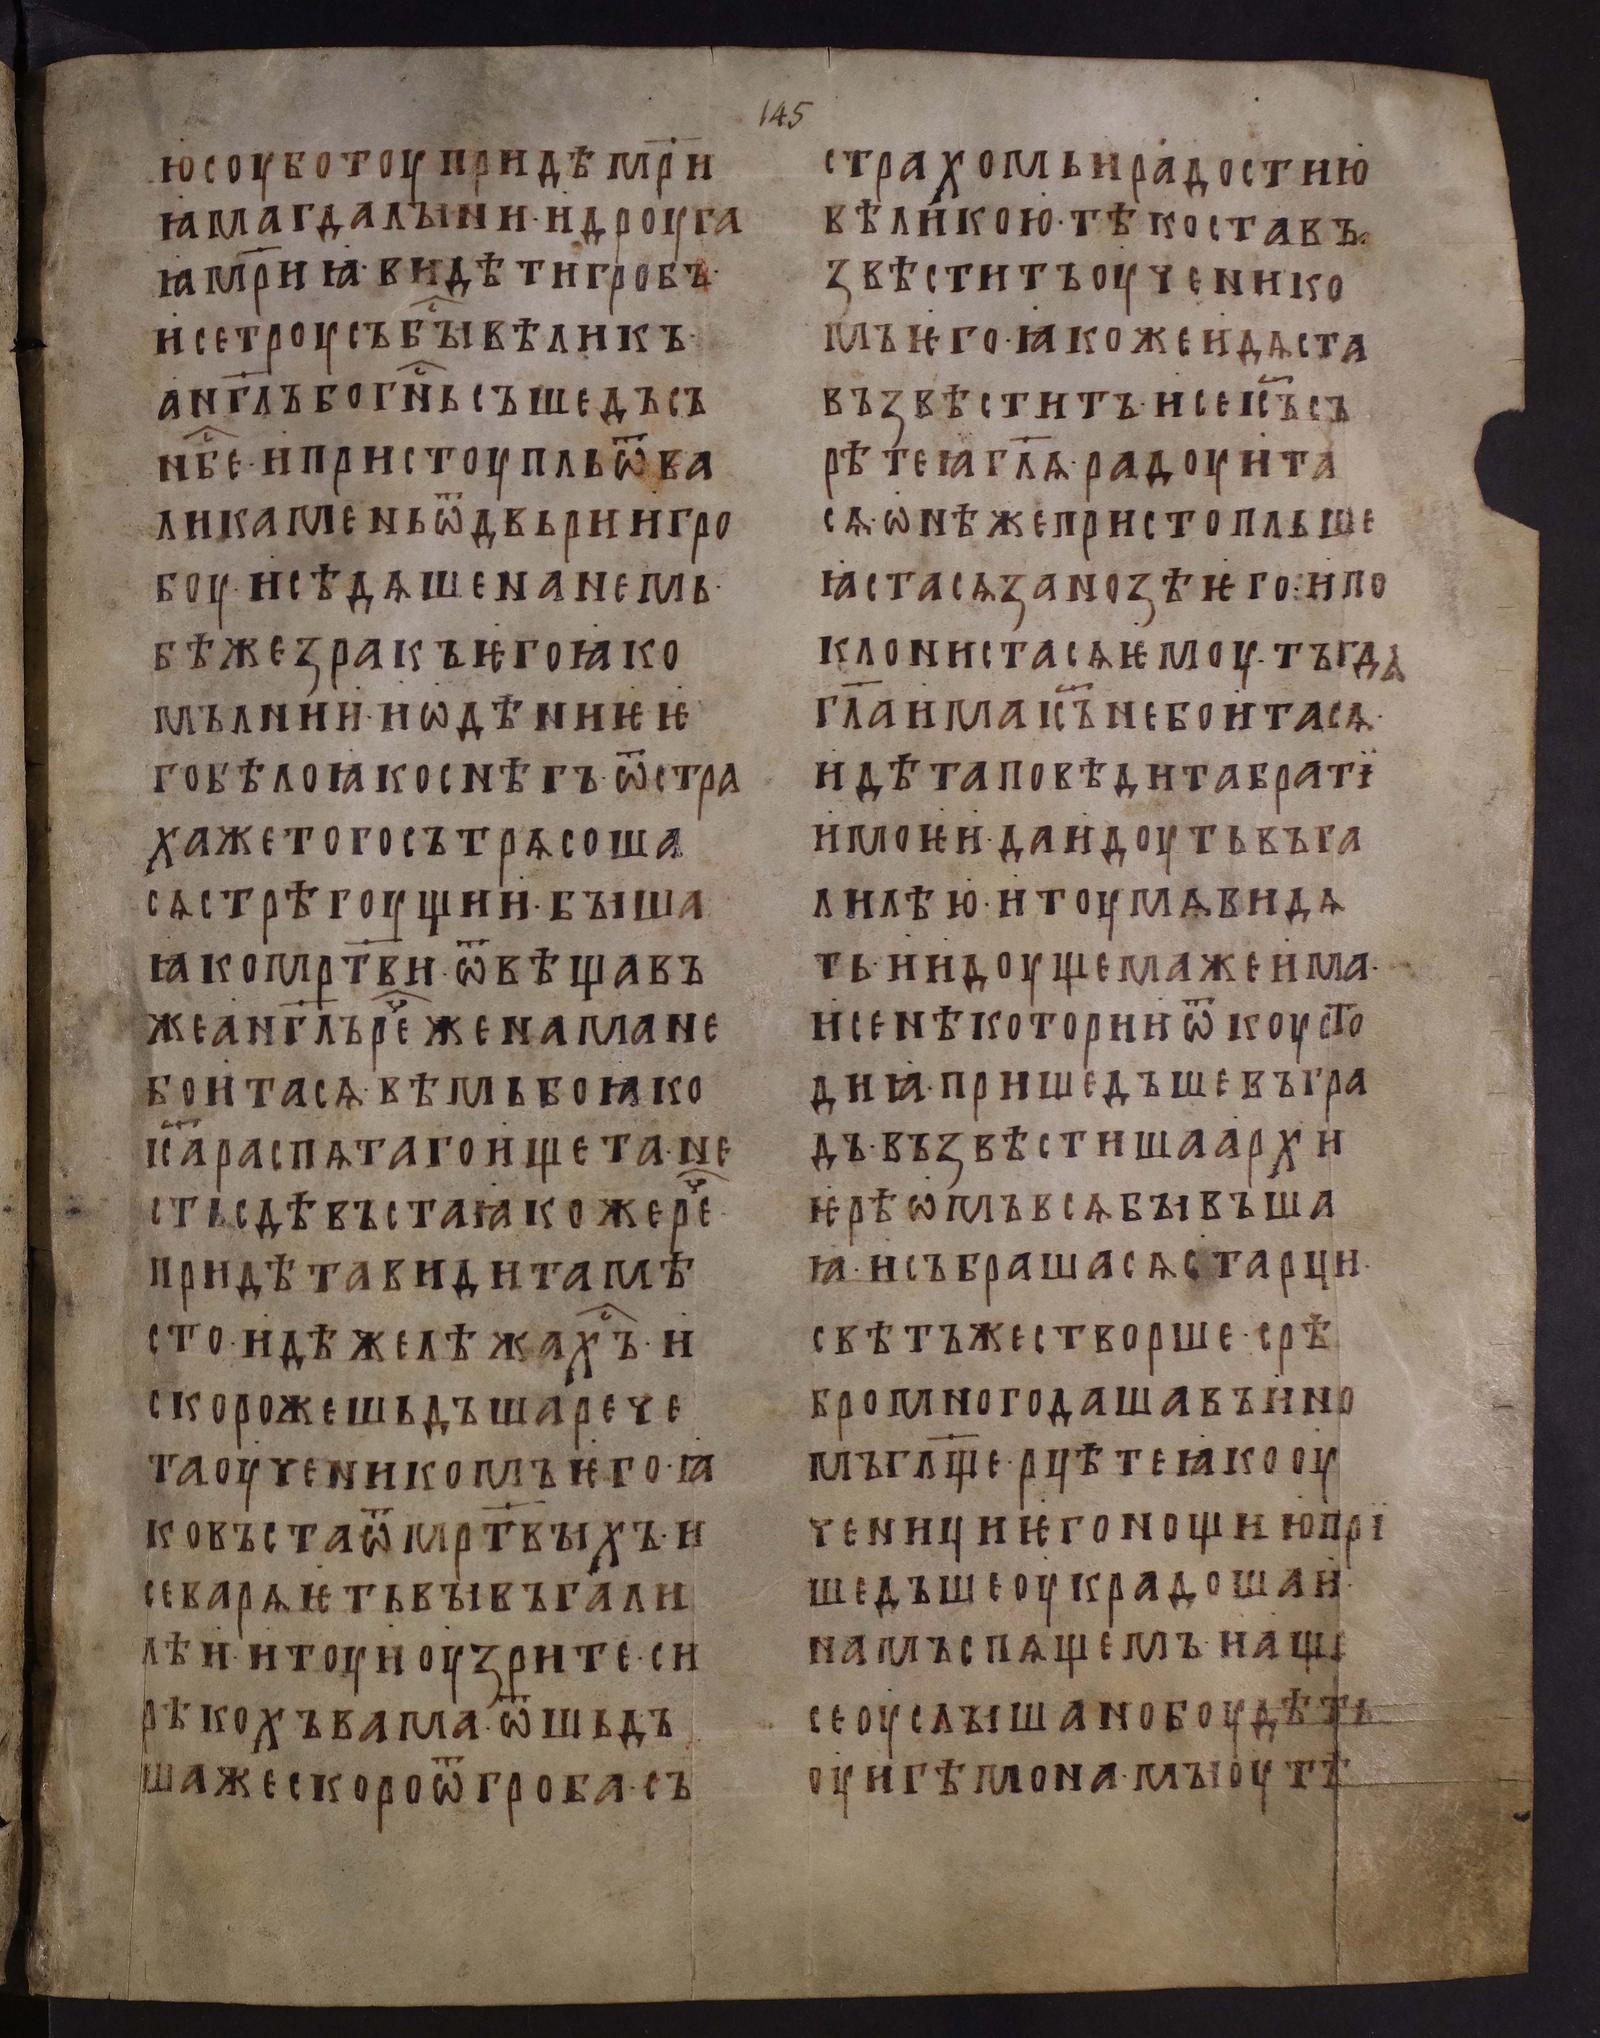 145
юсоуботоу придѣ мр҃и
ꙗ магдалыни· и дроуга
ꙗ мр҃иꙗ· видѣти гробъ·
и се троусъ бⷭ҇ы вѣликъ·
анг҃лъ бо гⷭ҇нь съшедъ съ
нб҃ⷭе· и пристоупль ѿва
ли камень ѿ двьрии гро
боу· и сѣдѧше на немь·
бѣ же зракъ ѥго ꙗко
мълнии· и ѡдѣниѥ ѥ
го бѣло ꙗко снѣгъ· ѿ стра
ха же того сътрѧсоша
сѧ стрѣгоущии· быша
ꙗко мрт҃ви· ѿвѣщавъ
же анг҃лъ рⷱ҇е женама не
боита сѧ· вѣмь бо ꙗко
іс҃а распѧтаго ищета· не
сть сдѣ въста ꙗкоже рⷱ҇е·
придѣта видита мѣ
сто· идѣже лѣжа хⷭ҇ъ· и
скоро же шьдъша рече
та оученикомъ ѥго· ꙗ
ко въста ѿ мрт҃выхъ· и
се варѧѥть вы въ гали
лѣи· и тоу и оузрите· си
рѣкохъ вама· ѿшьдъ
шаже скоро ѿ гроба· съ
страхомь и радостию
вѣликою· тѣкоста въ
звѣститъ оученико
мъ ѥго· ꙗкоже идѧста
възвѣститъ· и се іс҃ъ съ
рѣте ꙗ гл҃ѧ· радоуита
сѧ· ѡнѣ же пристопльше
ꙗста сѧ за нозѣ ѥго· и по
клониста сѧ ѥмоу· тъгдꙗ
гл҃а има іс҃ъ не боита сѧ·
идѣта повѣдита братї
и моѥи· да идоуть въ га
лилѣю· и тоу мѧ видѧ
ть· и идоущема же има·
и се нѣкотории ѿ коусто
диꙗ· пришедъше въ гра
дъ· възвѣстиша архи
ѥрѣѡмъ всѧ бывъша
ꙗ· и събраша сѧ старци·
свѣтъ же створше· срѣ
бро много даша въино
мъ гл҃ще· рцѣте ꙗко оу
ченици ѥго нощию прї
шедъше оукрадоша и·
намъ спѧщемъ· и аще
се оуслышано боудѣть
оу игѣмона· мы оутѣ